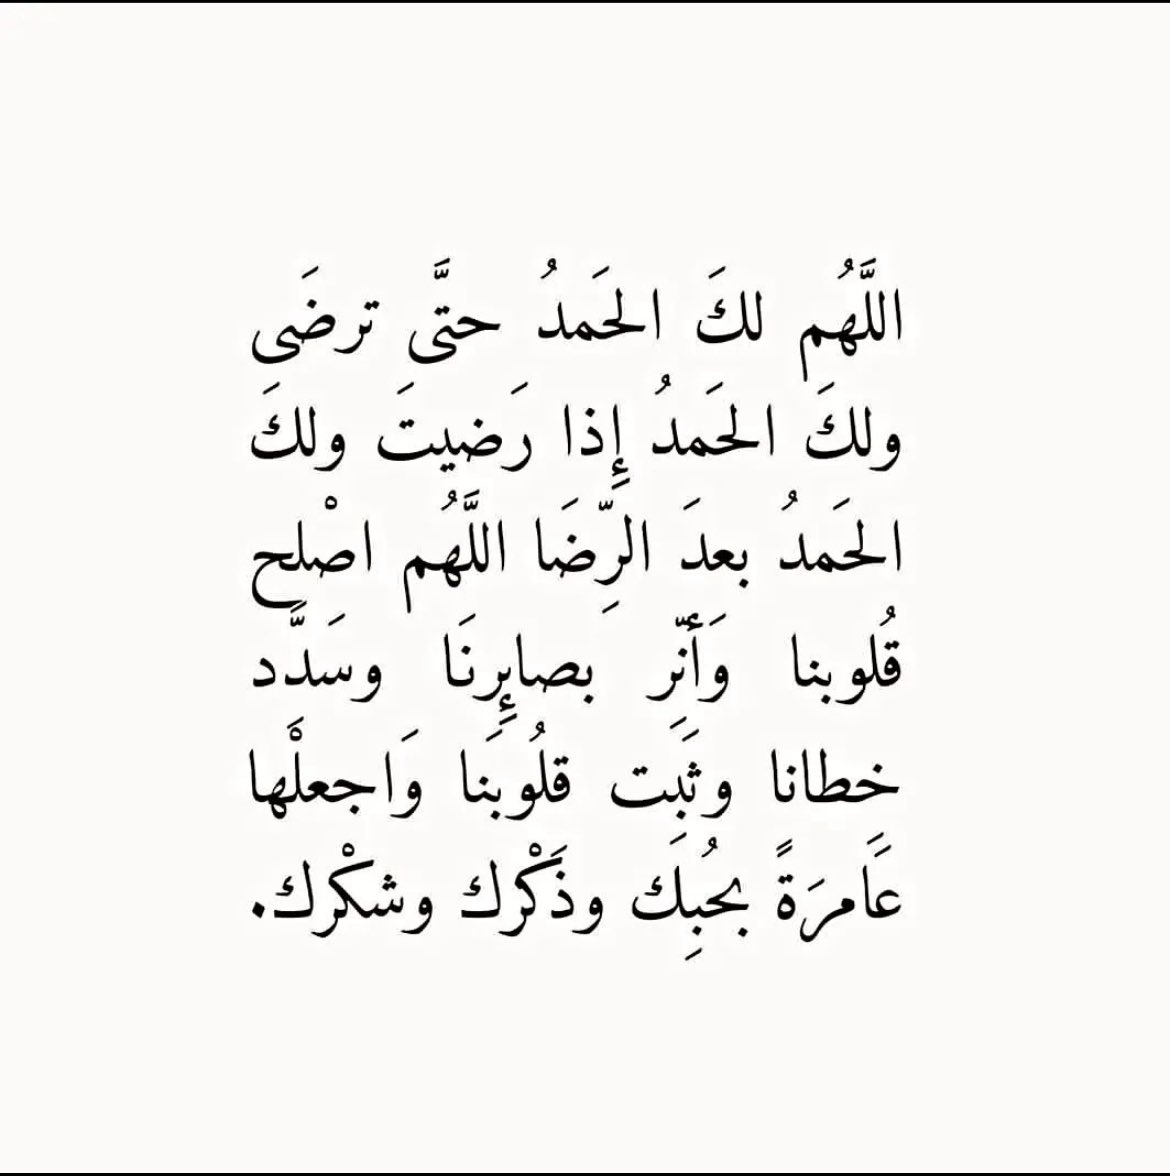 اللَّهُم لكَ الحَمدُ حتَّى ترضَى
ولكَ الحَمدُ إِذا رَضيتَ ولكَ
الحَمدُ بعدَ الرِّضَا اللَّهُم اصْلح
قُلوبنا وَأنّر بصاإِرنَا وسَدَّد
خطانا وثَبِت قلُوبنَا وَاجعلْها
عَامرَةً بحُبِك وذَكْرك وشكْرك.